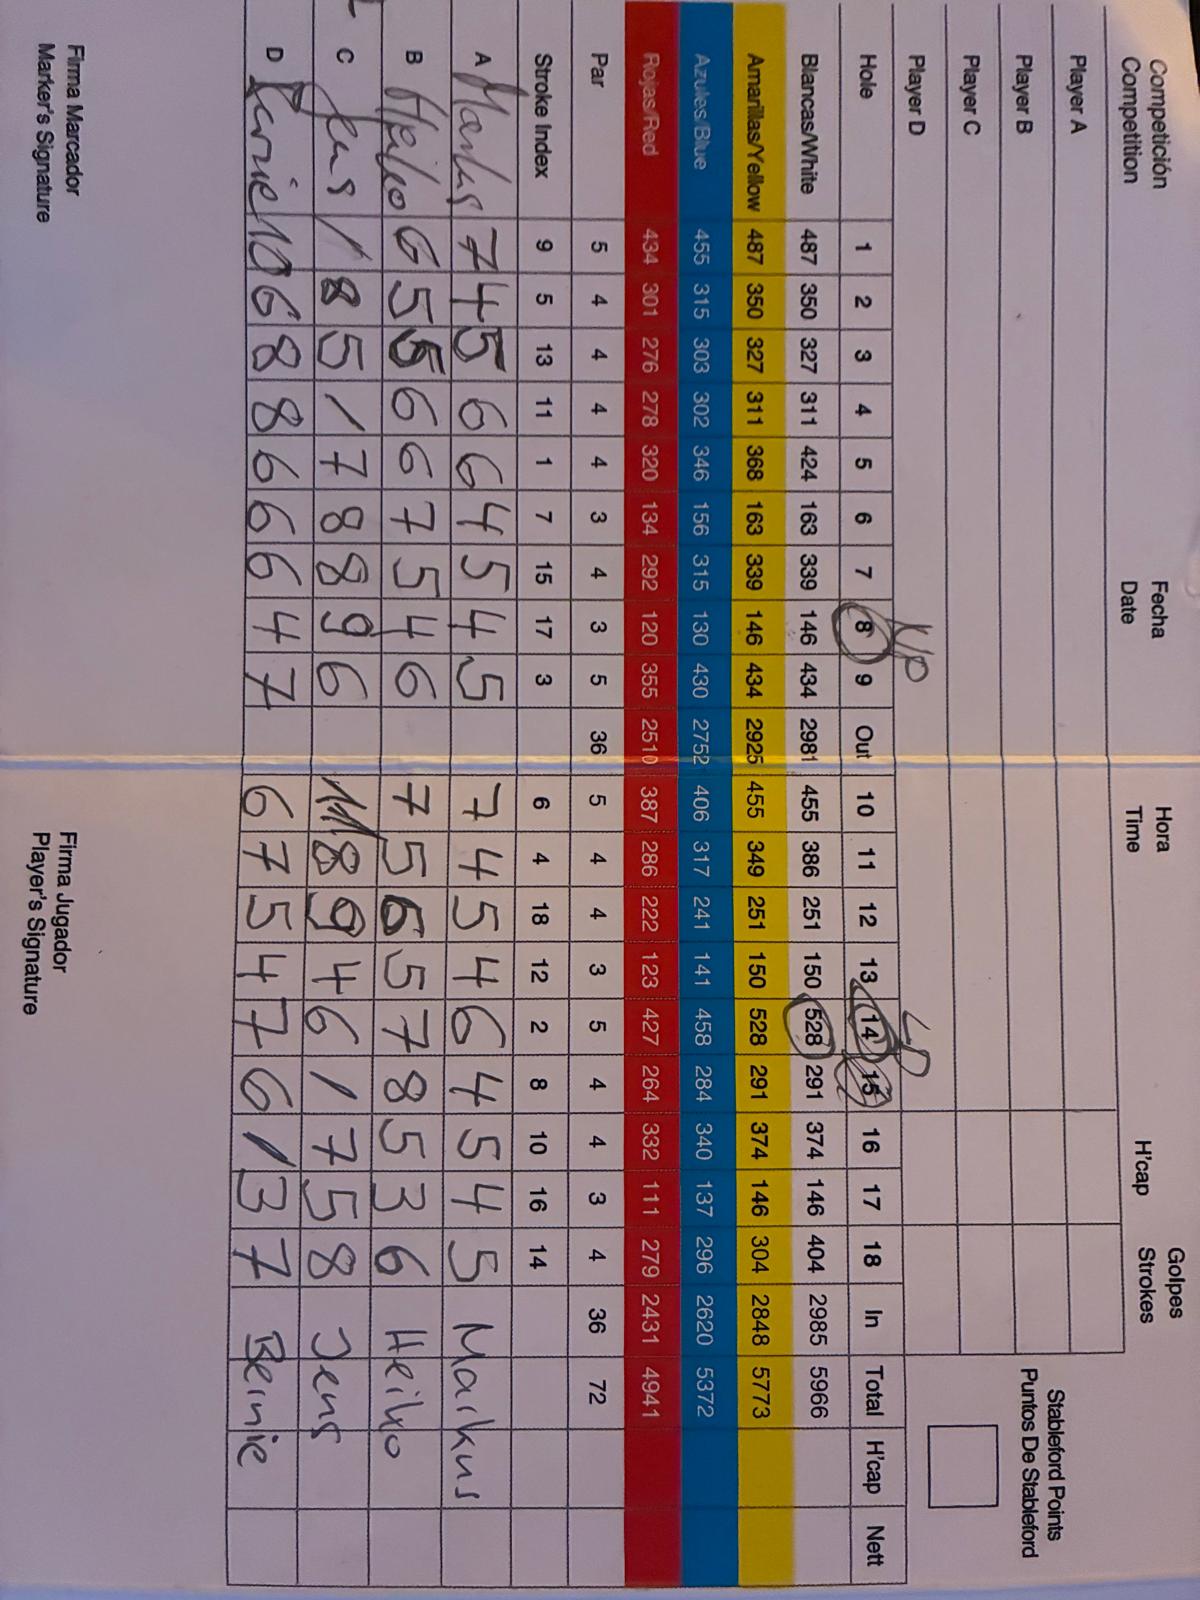 Competición
Competition
Fecha
Date
Hora
Time
H'cap
Golpes
Strokes
Stableford Points
Puntos De Stableford
Player A
Player B
Player C
Player D
N/P
LD
Hole 1 2 3 4 5 6 7 8 9 Out 10 11 12 13 14 15 16 17 18 In Total H'cap Nett
Blancas/White 487 350 327 311 424 163 339 146 434 2981 455 386 251 150 528 291 374 146 404 2985 5966
Amarillas/Yellow 487 350 327 311 368 163 339 146 434 2925 455 349 251 150 528 291 374 146 304 2848 5773
Azules/Blue 455 315 303 302 346 156 315 130 430 2752 406 317 241 141 458 284 340 137 296 2620 5372
Rojas/Red 434 301 276 278 320 134 292 120 355 2510 387 286 222 123 427 264 332 111 279 2431 4941
Par 5 4 4 4 4 3 4 3 5 36 5 4 4 3 5 4 4 3 4 36 72
Stroke Index 9 5 13 11 1 7 15 17 3 6 4 18 12 2 8 10 16 14
A Markus 7 4 5 6 6 4 5 4 5 7 4 5 4 6 4 5 4 5 Markus
B Heiko 6 5 5 6 6 7 5 4 6 7 5 6 5 7 8 5 3 6 Heiko
C Jens / 8 5 / 7 8 8 9 6 11 8 9 4 6 / 7 5 8 Jens
D Bernie 10 6 8 8 6 6 6 4 7 6 7 5 4 7 6 / 3 7 Bernie
Firma Marcador
Marker's Signature
Firma Jugador
Player's Signature